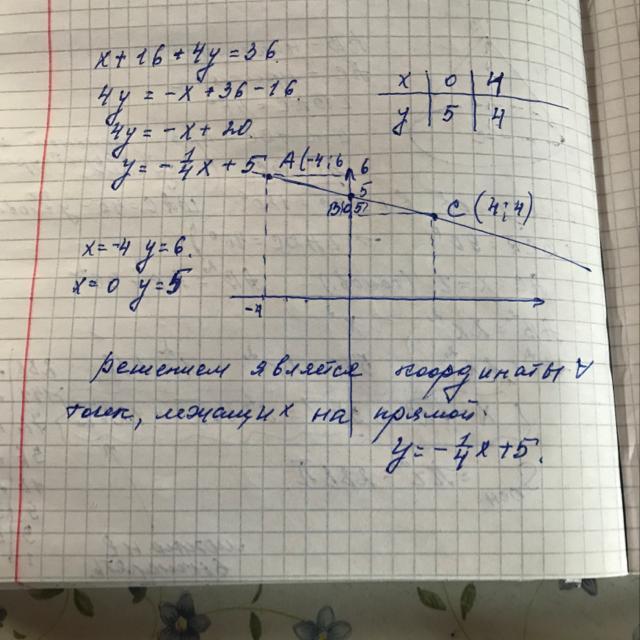 x+16+4y=36.
4y = -x+36-16.
4y = -x+20.
y = -1/4x+5
x | 0 | 4
y | 5 | 4
A(-4;6
6
5
C (4;4)
x=-4 y=6.
x=0 y=5
-4
решением является координаты ∀
точек, лежащих на прямой.
y=-1/4x+5.